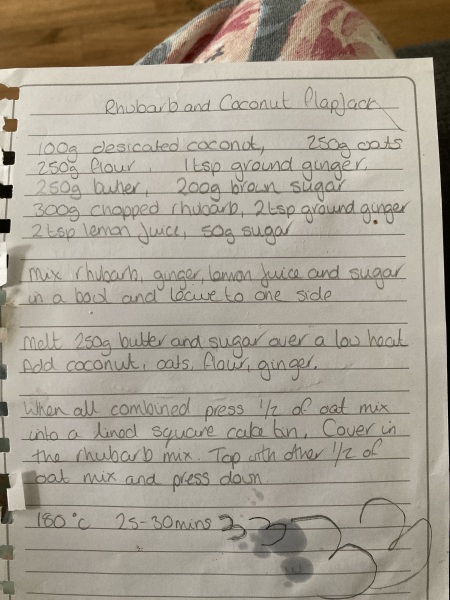 Rhubarb and Coconut Flapjack
100g desicated coconut, 250g oats
250g flour, 1tsp ground ginger.
250g butter, 200g brown sugar
300g chopped rhubarb, 2tsp ground ginger
2tsp lemon juice, 50g sugar
Mix rhubarb, ginger, lemon juice and sugar
in a bowl and leave to one side
Melt 250g butter and sugar over a low heat
Add coconut, oats, flour, ginger.
When all combined press 1/2 of oat mix
into a lined square cake tin. Cover in
the rhubarb mix. Top with other 1/2 of
oat mix and press down
180°c 25-30mins